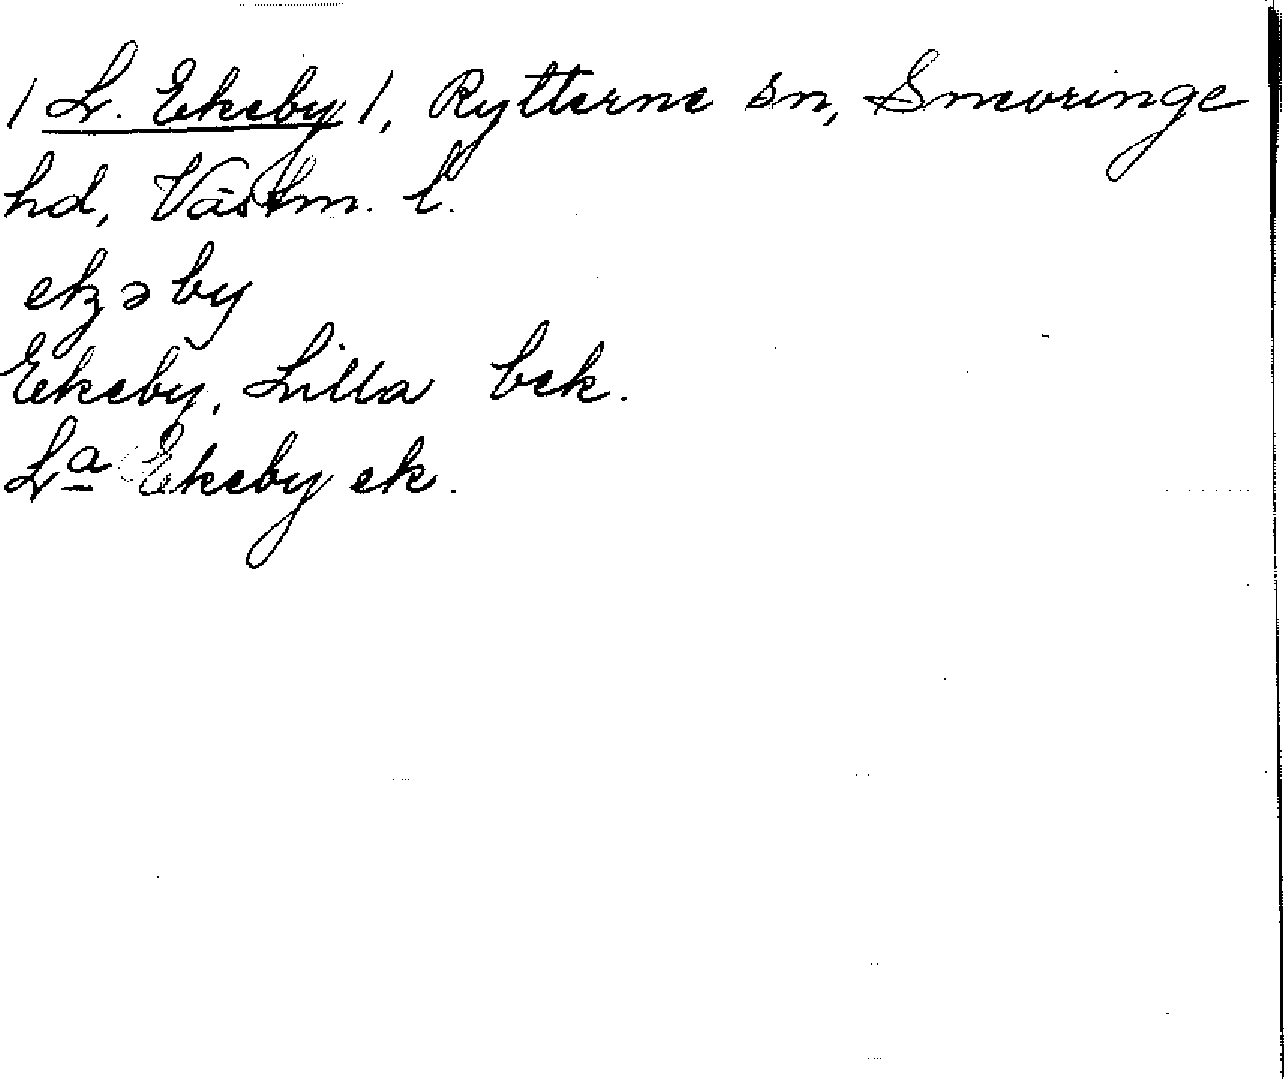 /L. Ekeby/, Rytterne sn, Snevringe
hd, Västm. l.
ekəby
Ekeby, Lilla bek.
La Ekeby ek.